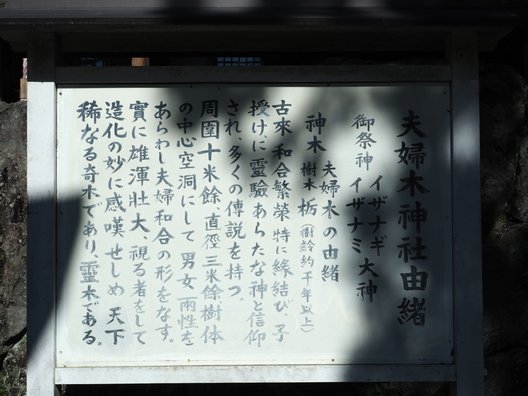 夫婦木神社由緒
御祭神 イザナギ イザナミ 大神
夫婦木の由緒
神木 樹木 栃(樹齢約千年以上)
古來和合繁榮特に縁結び、子
授けに靈驗あらたな神と信仰
され、多くの傳説を持つ。
周圍十米餘、直徑三米餘樹体
の中心空洞にして男女両性を
あらわし夫婦和合の形をなす。
實に雄渾壮大、視る者をして
造化の妙に感嘆せしめ天下
稀なる奇木であり、靈木である。